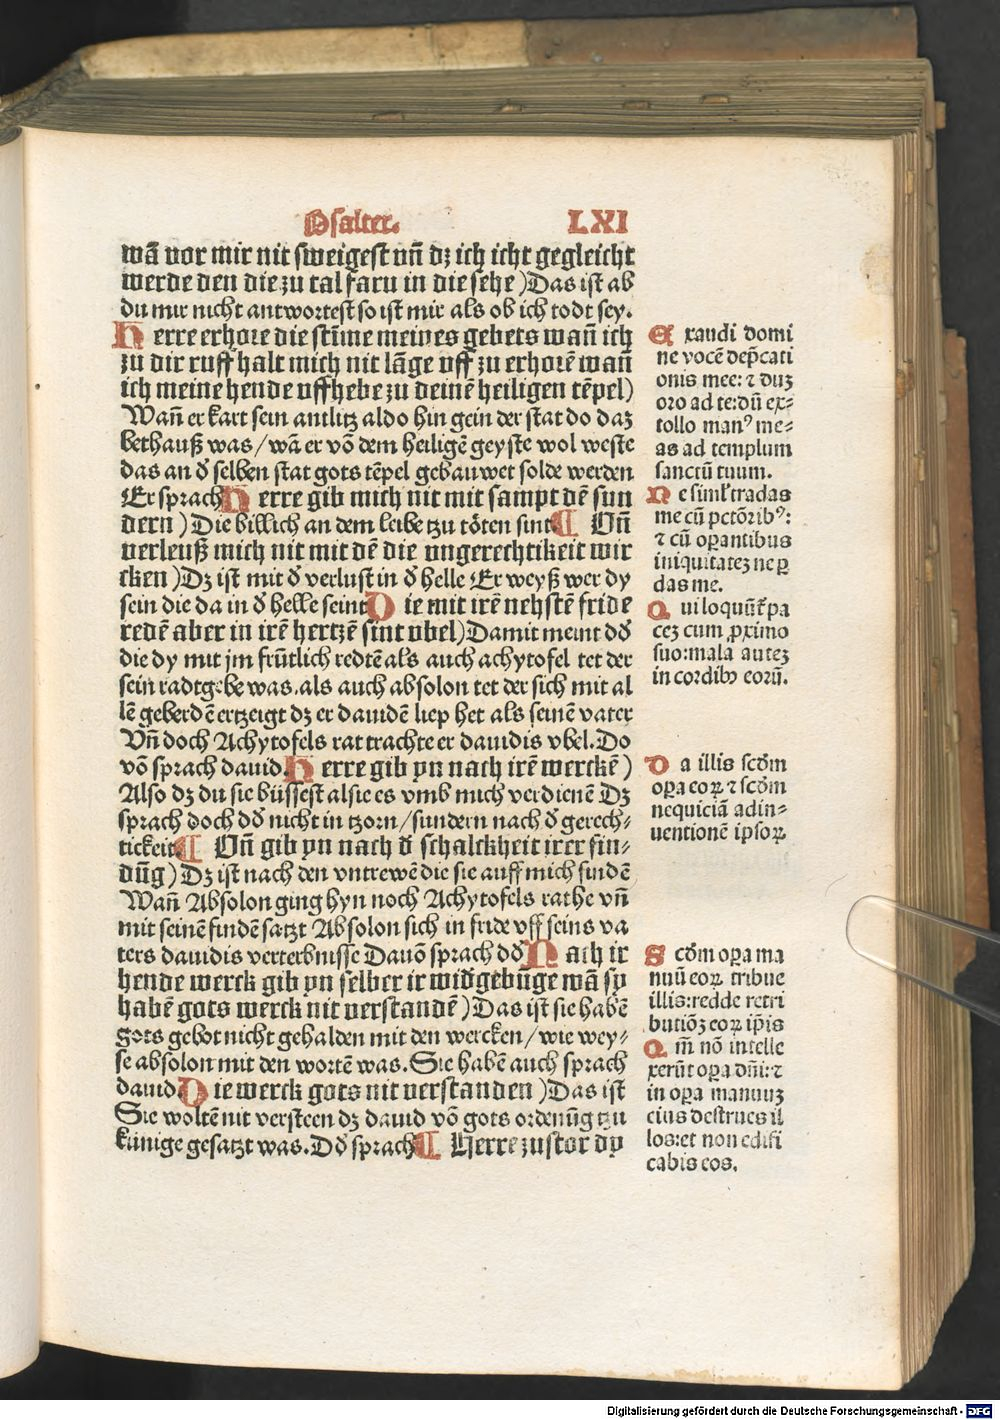 Psalter. LXI
wā vor mir nit sweigest vn̄ dz ich icht gegleicht
werde den die zu tal farn in die sehe) Das ist ab
du mir nicht antwortest so ist mir als ob ich todt sey.
Herre erhore die stīme meines gebets wan̄ ich
zu dir ruff halt mich nit lāge vff zu erhorē wan̄
ich meine hende vffhebe zu deinē heiligen tēpel)
Wan̄ er kart sein antlitz aldo hin gein der stat do daz
bethauß was / wā er vō dem heiligē geyste wol weste
das an d̕ selben stat gots tēpel gebauwet solde werden
Er sprach Herre gib mich nit mit sampt dē sun
dern) Die billich an dem leibe tzu tōten sint ¶ Vn̄
verleuß mich nit mit dē die vngerechtikeit wir
cken) Dz ist mit d̕ verlust in d̕ helle Er weyß wer dy
sein die da in d̕ helle seint Die mit irē nehstē fride
redē aber in irē hertzē sint vbel) Damit meint dd̕
die dy mit jm frūtlich redtē als auch achytofel tet der
sein radtgebe was. als auch absolon tet der sich mit al
lē geberdē ertzeigt dz er dauidē liep het als seinē vater
Vn̄ doch Achytofels rat trachte er dauidis vbel. Do
vō sprach dauid. Herre gib yn nach irē werckē)
Also dz du sie būssest als sie es vmb mich verdienē Dz
sprach doch dd̕ nicht in tzorn / sundern nach d̕ gerech⸗
tickeit ¶ Vn̄ gib yn nach d̕ schalckheit irer fin⸗
dūg) Dz ist nach den vntrewē die sie auff mich findē
Wan̄ Absolon ging hyn noch Achytofels rathe vn̄
mit seinē findē satzt Absolon sich in fride vff seins va
ters dauidis verterbnisse Dauō sprach dd̕ Nach ir
hende werck gib yn selber ir wid̕gebūge wā sy
habē gots werck nit verstandē) Das ist sie habē
gots gebot nicht gehalden mit den wercken / wie wey⸗
se absolon mit den wortē was. Sie habē auch sprach
dauid Die werck gots nit verstanden) Das ist
Sie woltē nit versteen dz dauid vō gots ordenūg tzu
kūnige gesatzt was. Dd̕ sprach ¶ Herre zustor dy
Exaudi domi
ne vocē dep̄cati
onis mee: ⁊ duʒ
oro ad te: dū ex⸗
tollo manꝰ me⸗
as ad templum
sanctū tuum.
Ne siml̕ tradas
me cū pctōribꝰ:
⁊ cū oꝑantibus
iniquitateʒ ne ꝑ
das me.
Qui loquūt̕ pa
ceʒ cum ꝓximo
suo: mala auteʒ
in cordibꝫ eorū.
Da illis scd̕m
oꝑa eoꝝ ⁊ scd̕m
nequiciā adin⸗
uentionē ipsoꝝ
Scd̕m oꝑa ma
nuū eoꝝ tribue
illis: redde retri
butiōʒ eoꝝ ip̄is
Qm̄ nō intelle
xerūt oꝑa dn̄i: ⁊
in oꝑa manuuʒ
eius destrues il
los: et non edifi
cabis eos.
Digitalisierung gefördert durch die Deutsche Forschungsgemeinschaft - DFG